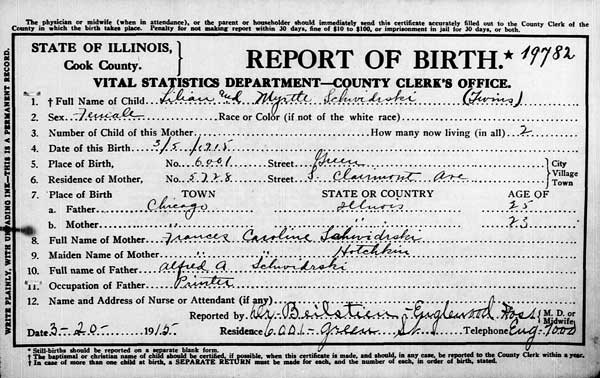 The physician or midwife (when in attendance), or the parent or householder should immediately send this certificate accurately filled out to the County Clerk of the
County in which the birth takes place. Penalty for not making report within 30 days, fine of $10 to $100, or imprisonment in jail for 30 days, or both.
STATE OF ILLINOIS,
Cook County.
REPORT OF BIRTH.* 19782
VITAL STATISTICS DEPARTMENT—COUNTY CLERK'S OFFICE.
WRITE PLAINLY, WITH UNFADING INK—THIS IS A PERMANENT RECORD.
1. † Full Name of Child Lilian and Myrtle Schwidrski (Twins)
2. Sex Female Race or Color (if not of the white race)
3. Number of Child of this Mother How many now living (in all) 2
4. Date of this Birth 3/5/1915
5. Place of Birth, No. 6001 Street Green
6. Residence of Mother, No. 5728 Street S. Clairmont Ave
City
Village
Town
7. Place of Birth TOWN STATE OR COUNTRY AGE OF
a. Father Chicago Illinois 25
b. Mother " " 23
8. Full Name of Mother Frances Caroline Schwidrski
9. Maiden Name of Mother " " Hotchkin
10. Full name of Father Alfred A Schwidrski
11. Occupation of Father Printer
12. Name and Address of Nurse or Attendant (if any)
Reported by Dr. Beilstien - Englewood Hosp M. D. or Midwife
Date 3-20- 1915- Residence 6001- Green St. Telephone Eng-
* Still-births should be reported on a separate blank form.
† The baptismal or christian name of child should be certified, if possible, when this certificate is made, and should, in any case, be reported to the County Clerk within a year.
† In case of more than one child at birth, a SEPARATE RETURN must be made for each, and the number of each, in order of birth, stated.